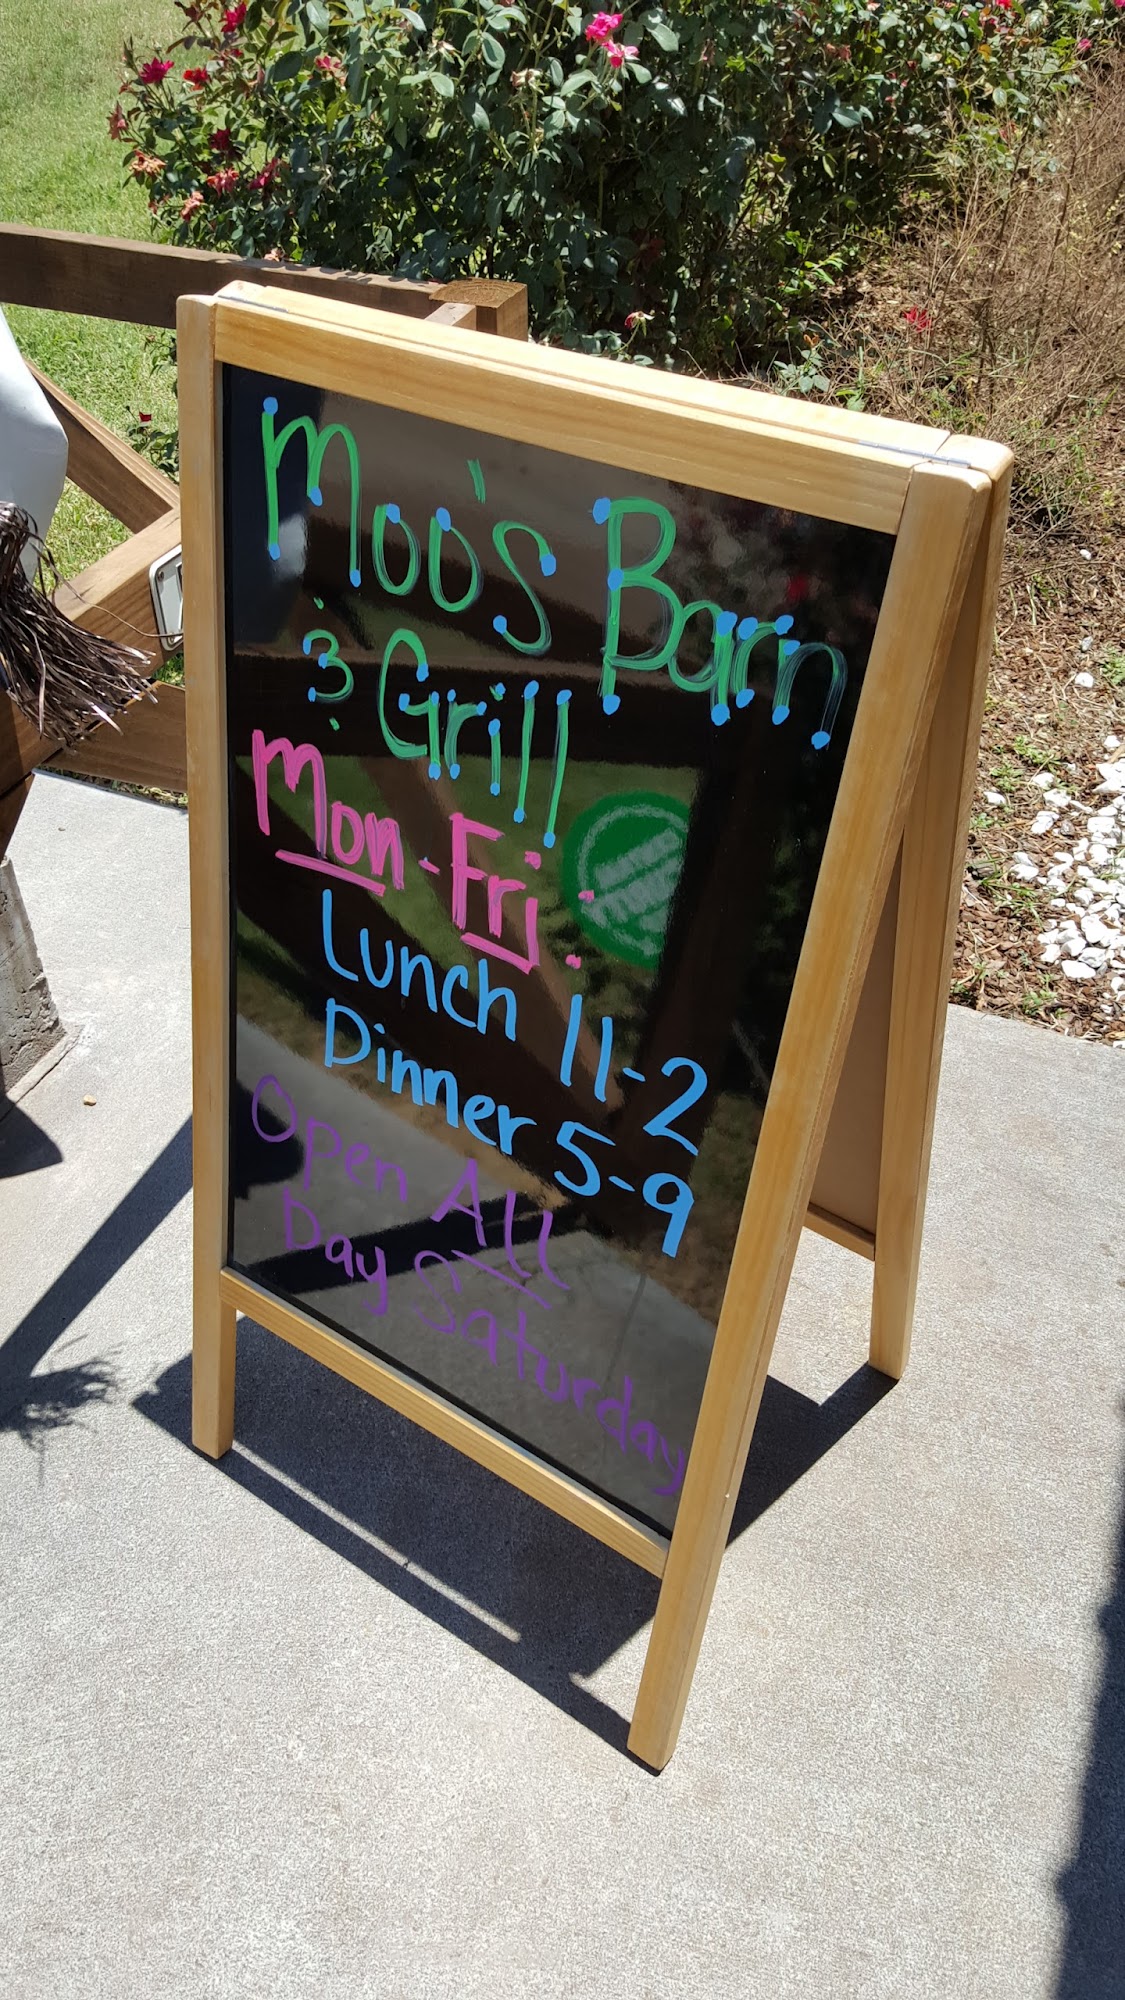 Moo's Barn
& Grill
Mon-Fri:
Lunch 11-2
Dinner 5-9
Open All
Day Saturday